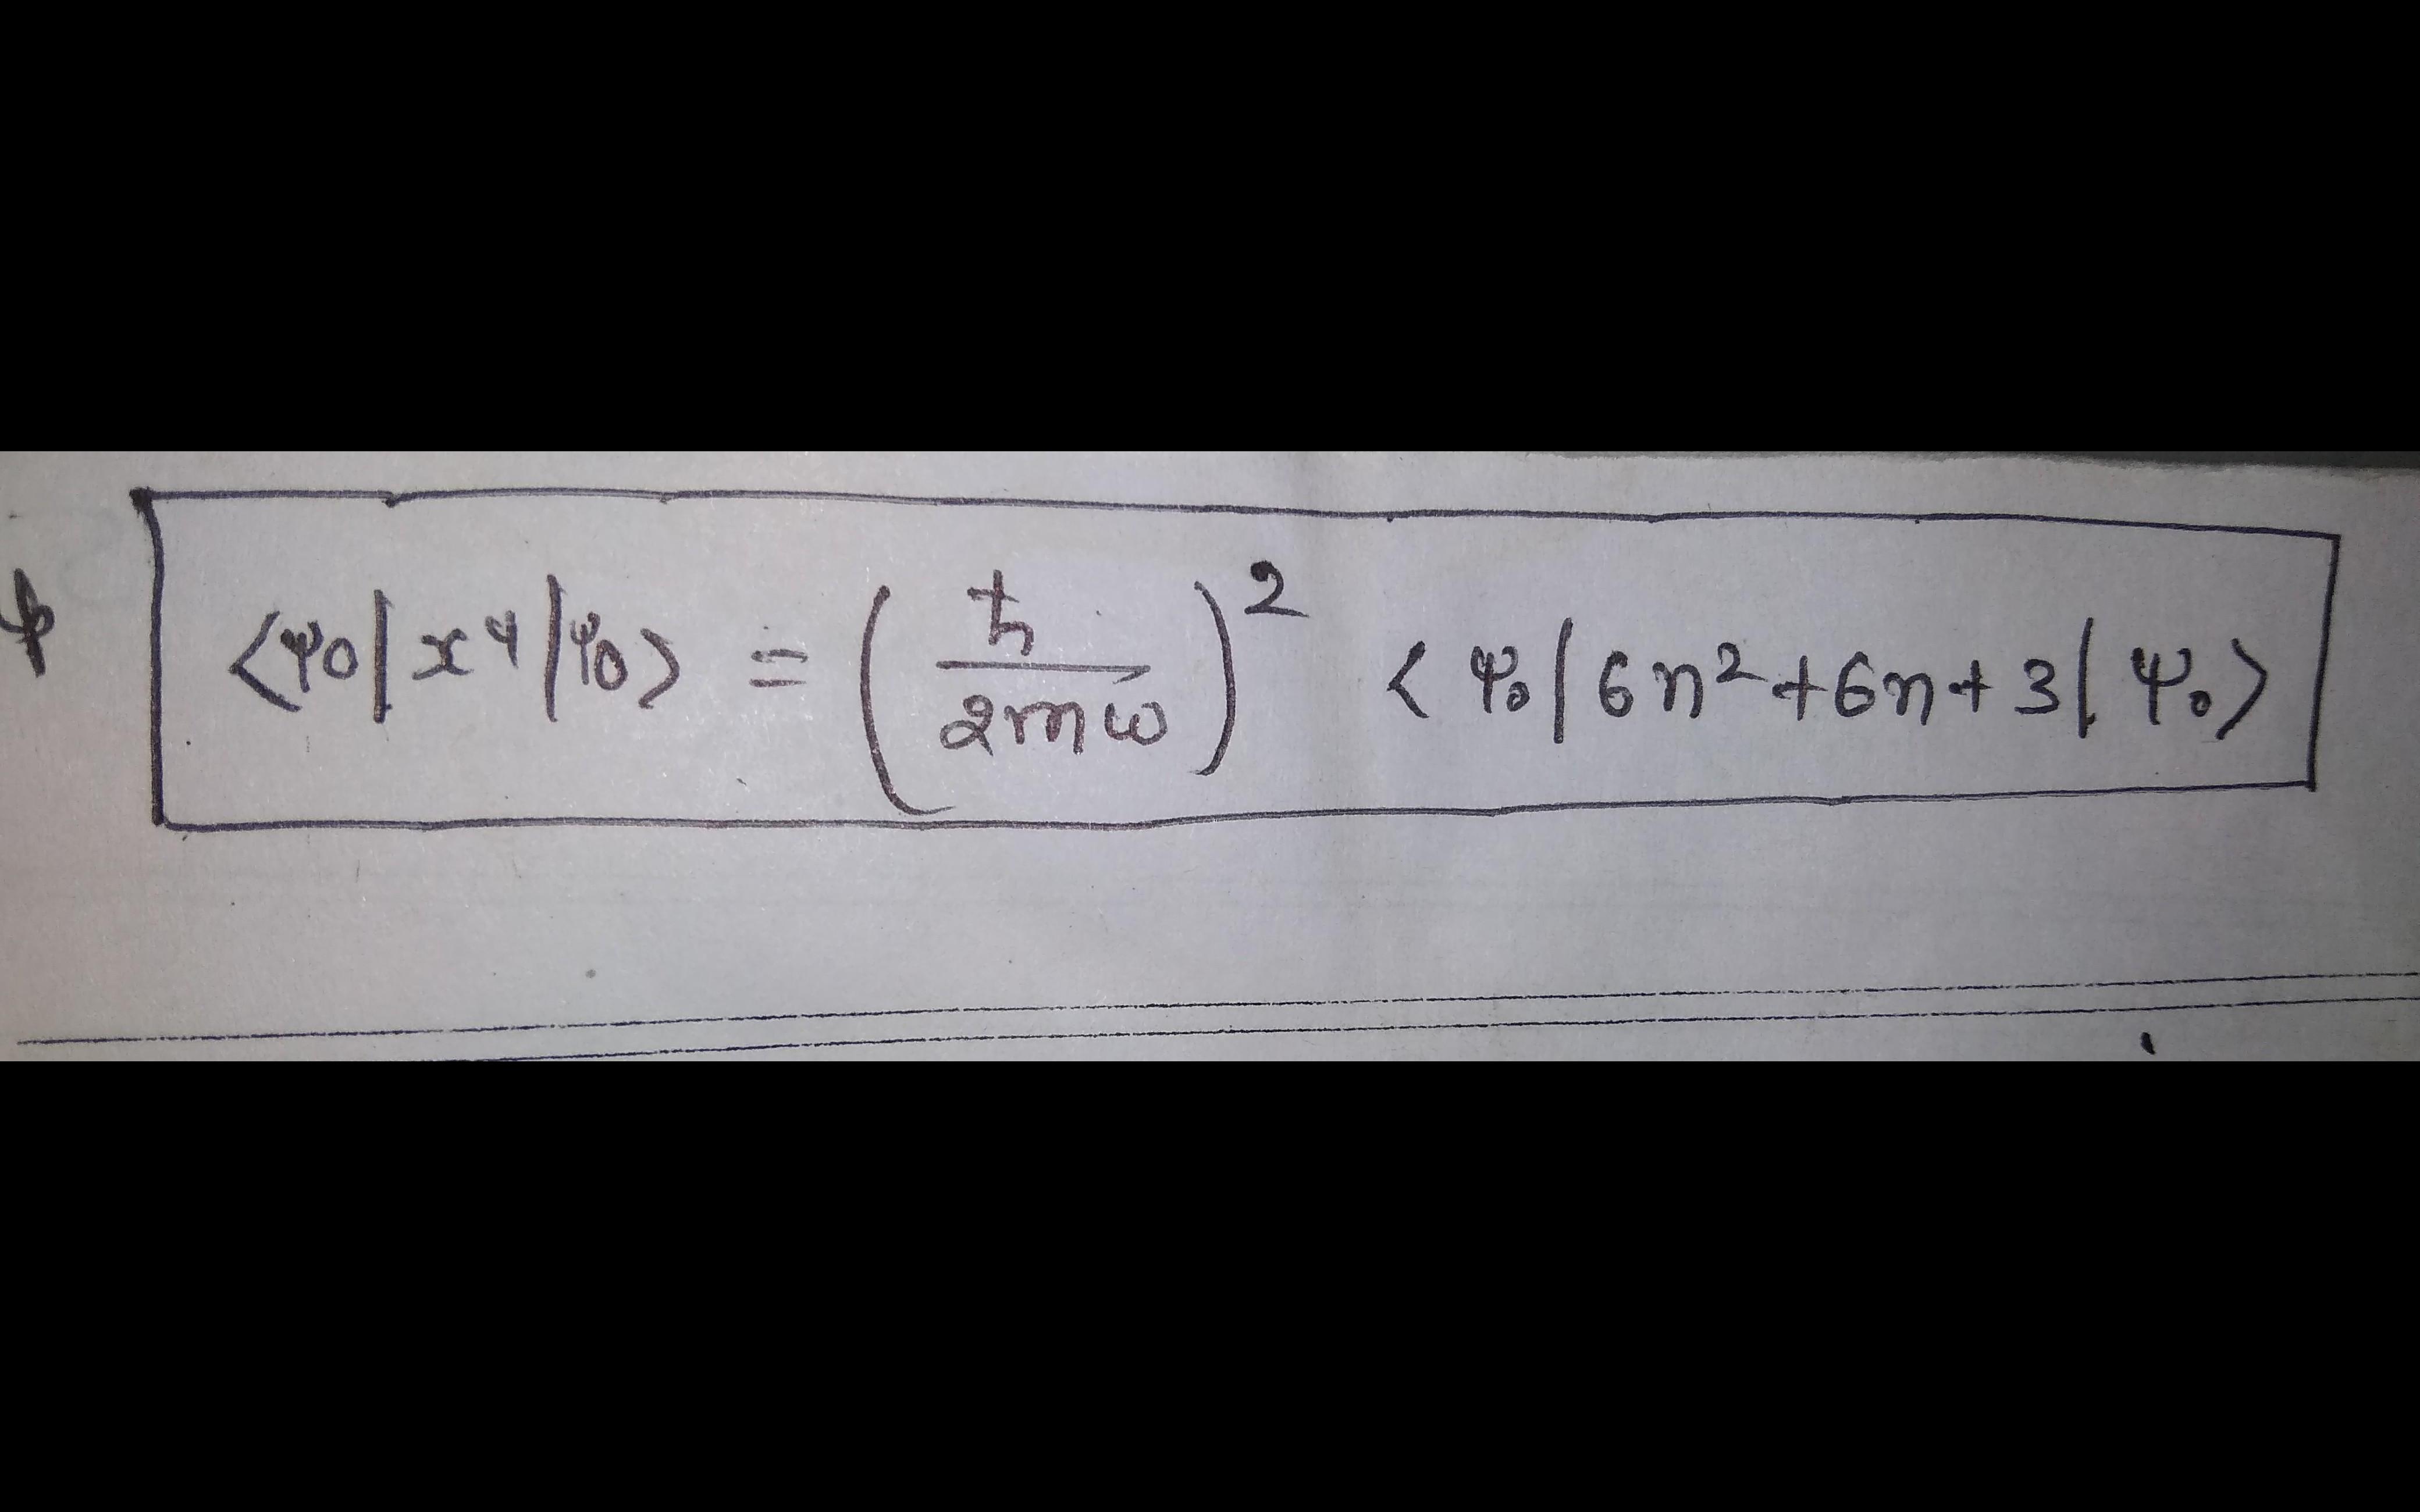 φ ⟨ψ0|x⁴|ψ0⟩ = (ħ/2mω)² ⟨ψ₀|6n²+6n+3|ψ₀⟩